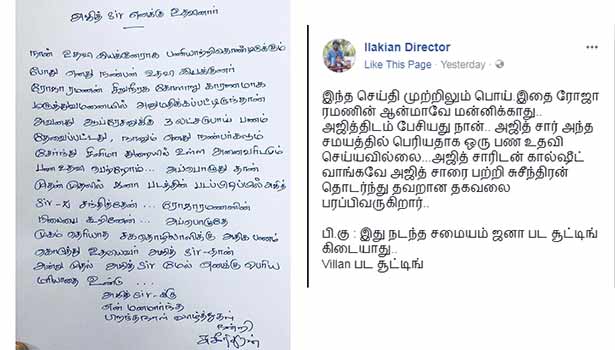 அஜித் Sir எனக்கு உதவினார்
நான் உதவி இயக்குனராக பணியாற்றிக்கொண்டிருக்கும்
போது எனது நண்பன் உதவி இயக்குனர்
ரோஜாரமணன் சிறுநீரக கோளாறு காரணமாக
மருத்துவமனையில் அனுமதிக்கப்பட்டிருந்தான்
அவனது ஆபரேசனுக்கு 3 லட்சரூபாய் பணம்
தேவைப்பட்டது, நானும் எனது நண்பர்களும்
சேர்ந்து சினிமா துறையில் உள்ள அனைவரிடமும்
பண உதவி பெற்றோம்... அப்பொழுது தான்
முதன் முதலில் ஜனா படத்தின் படப்பிடிப்பில் அஜித்
Sir-ஐ சந்தித்தேன்... ரோஜாரமணனின்
நிலையை கூறினேன்... அப்பொழுதே
முகம் தெரியாத சகதொழிலாளிக்கு அதிக பணம்
கொடுத்து உதவியவர் அஜித் Sir-தான்
அன்று முதல் அஜித் Sir மேல் எனக்கு பெரிய
மரியாதை உண்டு...
அஜித் Sir-க்கு
என் மனமார்ந்த
பிறந்தநாள் வாழ்த்துகள்
நன்றி
சுசீந்திரன்
Ilakian Director
Like This Page · Yesterday ·
இந்த செய்தி முற்றிலும் பொய்.இதை ரோஜா
ரமணின் ஆன்மாவே மன்னிக்காது.
அஜித்திடம் பேசியது நான்.. அஜித் சார் அந்த
சமயத்தில் பெரியதாக ஒரு பண உதவி
செய்யவில்லை...அஜித் சாரிடன் கால்ஷீட்
வாங்கவே அஜித் சாரை பற்றி சுசீந்திரன்
தொடர்ந்து தவறான தகவலை
பரப்பிவருகிறார்..
பி.கு : இது நடந்த சமையம் ஜனா பட சூட்டிங்
கிடையாது..
Villan பட சூட்டிங்